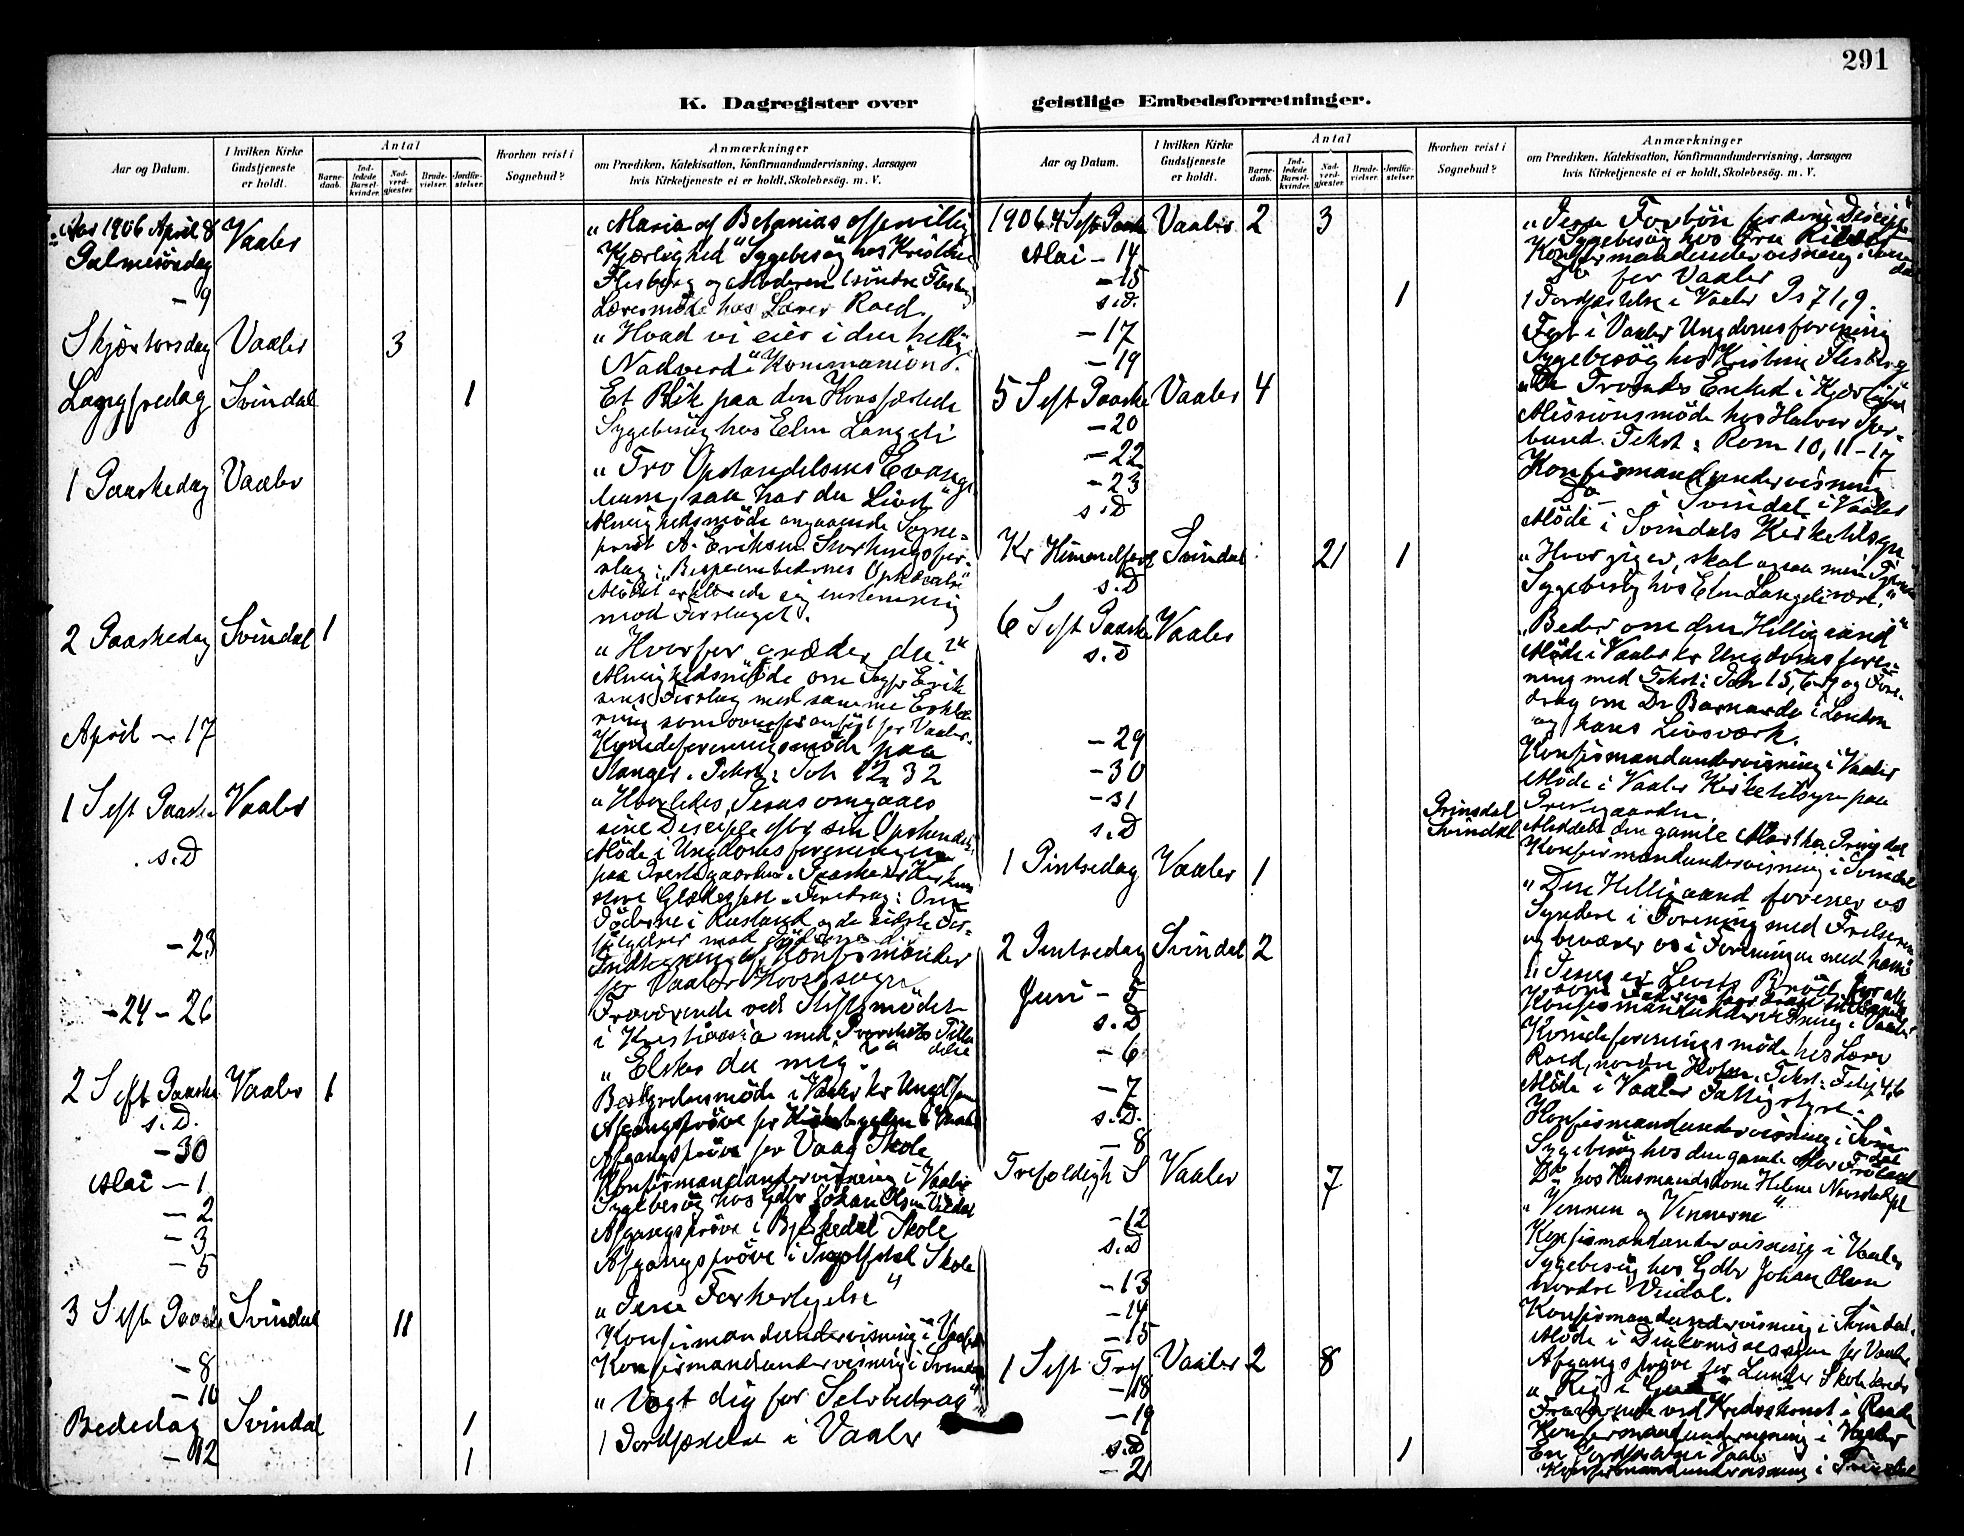 291
K. Dagregister over geistlige Embedsforretninger.
Aar og Datum.
I hvilken Kirke Gudstjeneste er holdt.
Antal
Barne-daab.
Ind-ledede Barsel-kvinder.
Nad-verd-gjester.
Brude-vielser.
Jordfæ-stelser.
Hvorhen reist i Sognebud?
Anmærkninger
om Prædiken, Katekisation, Konfirmandundervisning, Aarsagen
hvis Kirketjeneste ei er holdt, Skolebesøg. m. V.
Aar 1906 April 8 Vaaler "Maria af Betanias offervillig
Palmesøndag Kjærlighed" Sygebesøg hos Kristine
Flesberg og Moderen søndre Flesberg
— 9 Læremøde hos Lærer Roed.
Skjærtorsdag Vaaler 3 "Hvad vi eier i den hellig
Nadverd" Kommunion.
Langfredag Svindal 1 Et Blik paa den Korsfæstede
Sygebesøg hos Elm Langeli
1 Paaskedag Vaaler "Tro Opstandelsens Evange
lium, saa har du Livet"
Menighedsmøde angaaende Sogne-
prest A. Eriksens Stortingsfor-
slag: "Bispeembedernes Ophævelse"
Mødet erklærede sig enstemmig
mod Forslaget.
2 Paaskedag Svindal 1 "Hvorfor græder du?"
Menighedsmøde om Sogpr Erik
sens Forslag med samme Erklæ
ring som ovenfor anført for Vaaler.
April — 17 Kvindeforeningsmøde paa
Stanger. Tekst: Joh 12, 32
1 Seft Paaske Vaaler "Hvorledes Jesus omgaaes
sine Disciple efter sin Opstandelse
s.D Møde i Ungdomsforeningen
paa Prestegaarden. Paasken er Kirkens
store Glædesfest. Foredrag: Om
Jøderne i Rusland og de sidste For-
følgelser mod Jøderne
— 23 Indtegning af Konfirmander
for Vaaler Hovedsogn
— 24 — 26 Fraværende ved Stiftsmødet
i Kristiania med Provstens Tilla
delse
2 Seft Paaske Vaaler 1 "Elsker du mig?"
s.D. Bestyrelsesmøde i Vaaler kr Ungdfor
— 30 Afgangsprøve for
Mai — 1 Afgangsprøve for Vaag Skole
— 2 Konfirmandundervisning i Vaaler
Sygebesøg hos Gdbr Johan Olsen Vridal
— 3 Afgangsprøve i Skole
— 5 Afgangsprøve i Skole
3 Seft Paaske Svindal 11 "Jesu Forherligelse"
— 8 Konfirmandundervisning i Vaaler
— 10 Konfirmandundervisning i Svindal
Bededag Svindal 1 "Vogt dig for Selvbedrag"
— 12 1 1 Jordfæstelse i Vaaler
Aar og Datum.
I hvilken Kirke Gudstjeneste er holdt.
Antal
Barne-daab.
Ind-ledede Barsel-kvinder.
Nad-verd-gjester.
Brude-vielser.
Jordfæ-stelser.
Hvorhen reist i Sognebud?
Anmærkninger
om Prædiken, Katekisation, Konfirmandundervisning, Aarsagen
hvis Kirketjeneste ei er holdt, Skolebesøg. m. V.
1906 4 Seft Paaske Vaaler 2 3 "Jesu Forbøn for sine Disciple"
Sygebesøg hos Fru
Mai — 14 Konfirmandundervisning i Svin
dal
— 15 Do for Vaaler
s.D. 1 1 Jordfæstelse i Vaaler Ps 71, 9.
— 17 Fest i Vaaler Ungdomsforening
— 19 Sygebesøg hos Kristine Flesberg
5 Seft Paaske Vaaler 4 "De Troendes Enhed i Kjærlighed"
— 20 Missionsmøde hos Halvor Sper-
bund. Tekst: Rom 10, 11-17
— 22 Konfirmandundervisning
— 23 Do i Svindal i Vaaler
s.D Møde i Svindals Kirketilsyn
Kr Himmelfart Svindal 21 1 "Hvor jeg er, skal ogsaa min Tjener
være."
s.D Sygebesøg hos Elm Langeli
6 Seft Paaske Vaaler "Beder om den Helligaand"
s.D Møde i Vaaler kr Ungdomsfore-
ning med Tekst: Joh 15, 6-7 og Fore-
drag om Dr Barnardo i London
og hans Livsværk.
— 29 Konfirmandundervisning i Vaaler
— 30 Møde i Vaaler Kirketilsyn paa
Prestegaarden.
— 31 Prinsdal Svindal Meddelt den gamle Martha Prinsdal
s.D Konfirmandundervisning i Svindal
1 Pintsedag Vaaler 1 "Den Helligaand forener os
Syndere i Forening med Frelseren
og bevarer os i Foreningen med ham"
2 Pintsedag Svindal 2 "Jesus er Livets Brød for alle
Juni — 5 Konfirmandundervisning i Vaaler
s.D Kvindeforeningsmøde hos Lærer
Roed, nordre Tekst: Filip 4, 6
— 6 Møde i Vaaler Fattigstyre.
— 7 Konfirmandundervisning i Svin-
dal
s.D. Sygebesøg hos den gamle Mor Froland
— 8 Do hos Husmandskone Helene
Trefoldigh S Vaaler 7 "Vennen og Vennerne"
— 12 Konfirmandundervisning i Vaaler
s.D Sygebesøg hos Gdbr Johan Olsen
nordre Vridal.
— 13 Konfirmandundervisning i Svindal.
— 14 Møde i Diakonissesagen for Vaaler
— 15 Afgangsprøve for Lunder Skolekreds
1 Seft Tref Vaaler 2 8 "Rig i Gud"
— 18 Fraværende ved Kredsmødet i Raade
— 19 Konfirmandundervisning i Vaaler
s.D 1 En Jordfæstelse i Vaaler
— 21 Konfirmandundervisning i Svindal